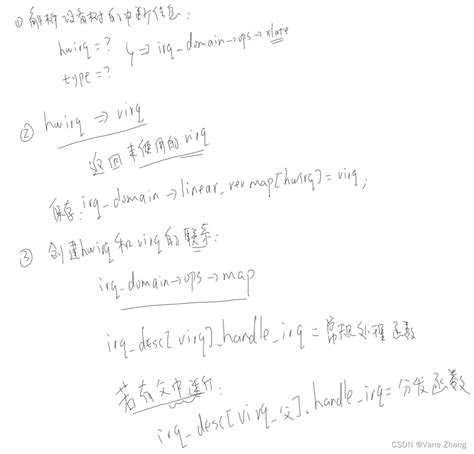 ① 解析设备树的中断信息:
hwirq = ?
type = ?
} => irq_domain→ops→xlate
② hwirq => virq
返回未使用的virq
保存: irq_domain→linear_revmap[hwirq] = virq;
③ 创建hwirq和virq的联系:
irq_domain→ops→map
irq_desc[virq].handle_irq = 常规处理函数
若有父中断:
irq_desc[virq_父].handle_irq = 分发函数
CSDN @Vane Zhang